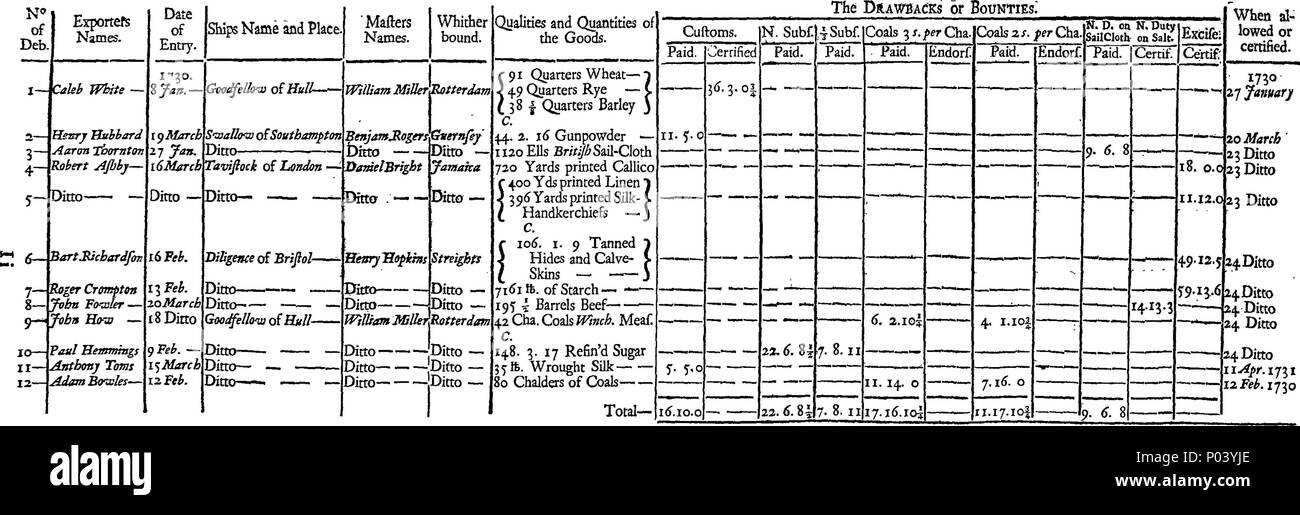 The DRAWBACKS or BOUNTIES.
No of Deb. Exporters Names. Date of Entry. Ships Name and Place. Maſters Names. Whither bound. Qualities and Quantities of the Goods. Cuſtoms. N. Subſ. ⅓ Subſ. Coals 3 s. per Cha. Coals 2 s. per Cha. N. D. on SailCloth N. Duty on Salt. Exciſe. When allowed or certified.
Paid. Certified Paid. Paid. Paid. Endorſ. Paid. Endorſ. Paid. Certif. Certif.
1— Caleb White — 1730. 8 Jan. — Goodfellow of Hull — William Miller Rotterdam { 91 Quarters Wheat— 49 Quarters Rye — 38 ½ Quarters Barley } 36. 3. 0¾ 1730 27 January
2— Henry Hubbard 19 March Swallow of Southampton Benjam. Rogers Guernſey C. 44. 2. 16 Gunpowder — 11. 5. 0 20 March
3— Aaron Thornton 27 Jan. Ditto Ditto — Ditto — 1120 Ells Britiſh Sail-Cloth 9. 6. 8 23 Ditto
4— Robert Aſhby — 16 March Taviſtock of London — Daniel Bright Jamaica 720 Yards printed Callico 18. 0. 0 23 Ditto
5— Ditto — Ditto — Ditto — Ditto — Ditto — { 400 Yds printed Linen 396 Yards printed Silk-Handkerchiefs — } 11. 12. 0 23 Ditto
6— Bart. Richardſon 16 Feb. Diligence of Briſtol — Henry Hopkins Streights C. { 106. 1. 9 Tanned Hides and Calve-Skins — — } 49. 12. 5 24 Ditto
7— Roger Crompton 13 Feb. Ditto — Ditto — Ditto — 7161 lb. of Starch — 59. 13. 6 24 Ditto
8— John Fowler — 20 March Ditto — Ditto — Ditto — 195 ½ Barrels Beef — 14. 13. 3 24 Ditto
9— John How — 18 Ditto Goodfellow of Hull — William Miller Rotterdam 42 Cha. Coals Winch. Meaſ. 6. 2. 10½ 4. 1. 10¾ 24 Ditto
10— Paul Hemmings 9 Feb. — Ditto — Ditto — Ditto — C. 148. 3. 17 Refin'd Sugar 22. 6. 8½ 7. 8. 11 24 Ditto
11— Anthony Toms 15 March Ditto — Ditto — Ditto — 35 lb. Wrought Silk — 5. 5. 0 11 Apr. 1731
12— Adam Bowles — 12 Feb. Ditto — Ditto — Ditto — 80 Chalders of Coals — 11. 14. 0 7. 16. 0 12 Feb. 1730
Total — 16. 10. 0 22. 6. 8½ 7. 8. 11 17. 16. 10½ 11. 17. 10¾ 9. 6. 8
alamy
Image ID: P03YJE
www.alamy.com